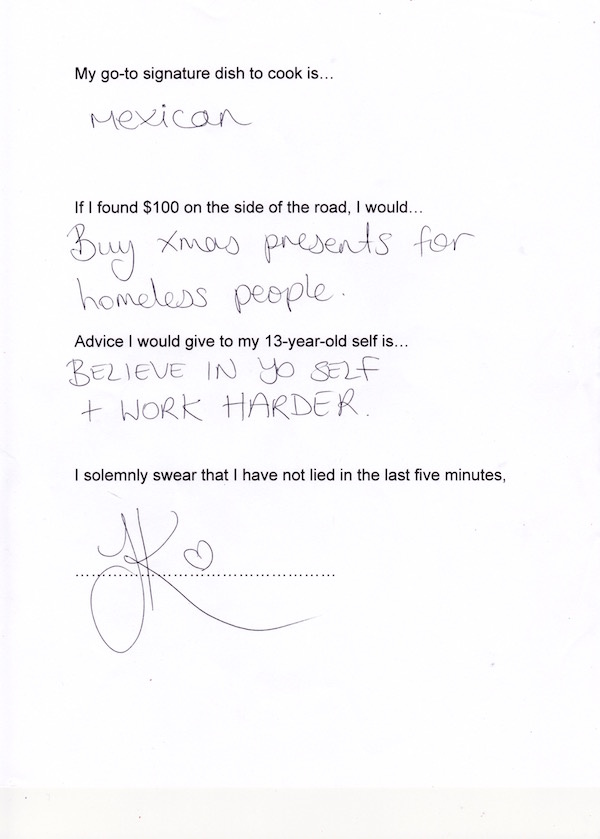 My go-to signature dish to cook is...
Mexican
If I found $100 on the side of the road, I would...
Buy xmas presents for
homeless people.
Advice I would give to my 13-year-old self is...
BELIEVE IN YO SELF
+ WORK HARDER.
I solemnly swear that I have not lied in the last five minutes,
JK ♡